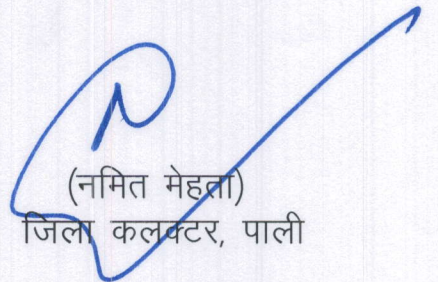 (नमित मेहता)
जिला कलक्टर, पाली